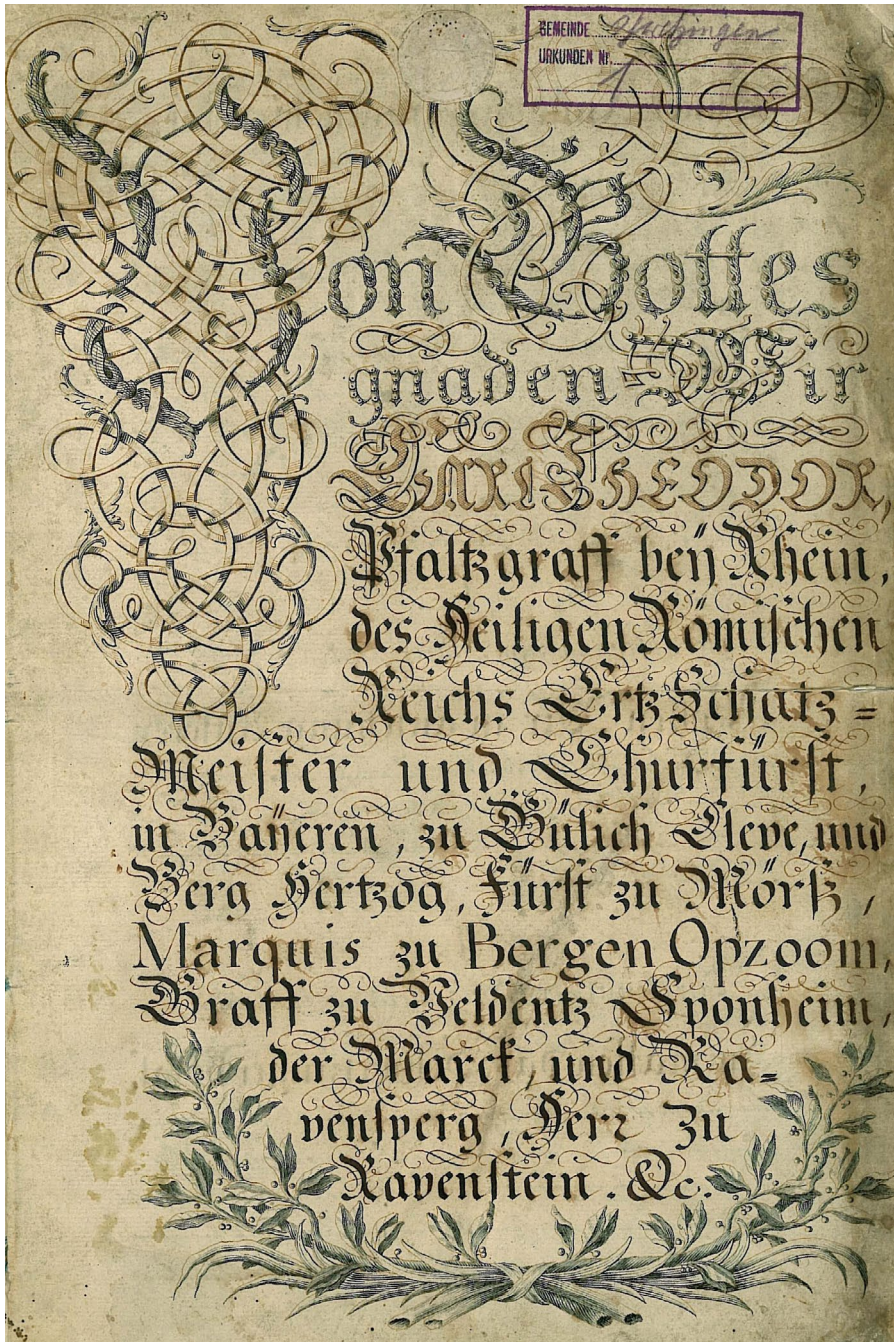 GEMEINDE Schwetzingen
URKUNDEN Nr. 1
Von Gottes
gnaden Wir
CARL THEODOR,
Pfaltzgraff beÿ Rhein,
des Heiligen Römischen
Reichs Ertz Schatz=
Meister und Churfürst,
in Baÿeren, zu Gülich Cleve, und
Berg Hertzog, Fürst zu Mörß,
Marquis zu Bergen Opzoom,
Graff zu Veldentz Sponheim,
der Marck, und Ra=
vensperg, Herr zu
Ravenstein. &c.